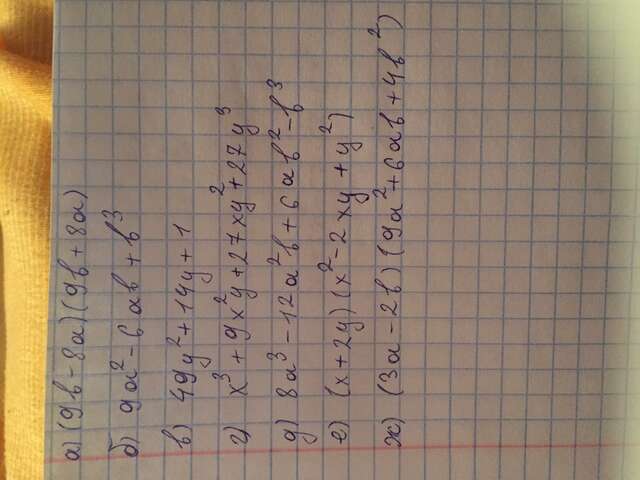 а) (9b-8a)(9b+8a)
б) 9a²-6ab+b³
в) 49y²+14y+1
г) x³+9x²y+27xy²+27y³
д) 8a³-12a²b+6ab²-b³
е) (x+2y)(x²-2xy+y²)
ж) (3a-2b)(9a²+6ab+4b²)